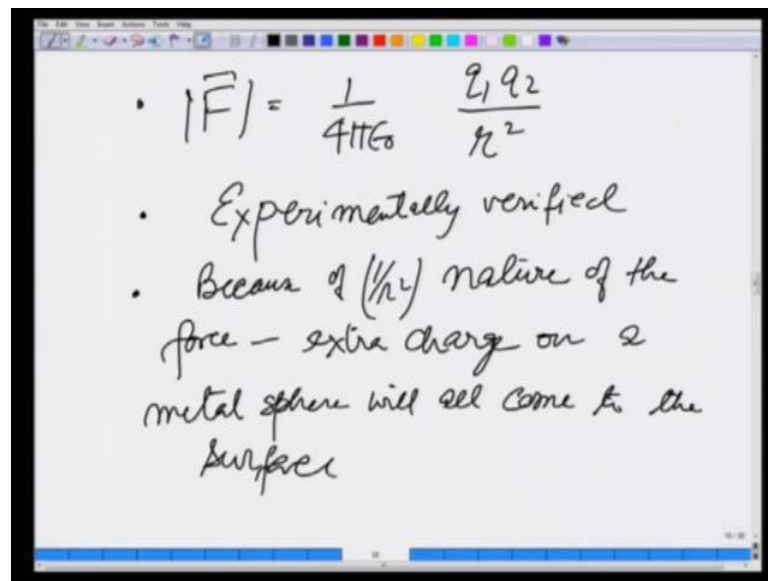 File Edit View Insert Actions Tools Help
• |F⃗| = 1/4πε₀ q₁q₂/r²
• Experimentally verified
• Because of (1/r²) nature of the
force – extra charge on a
metal sphere will all come to the
surface